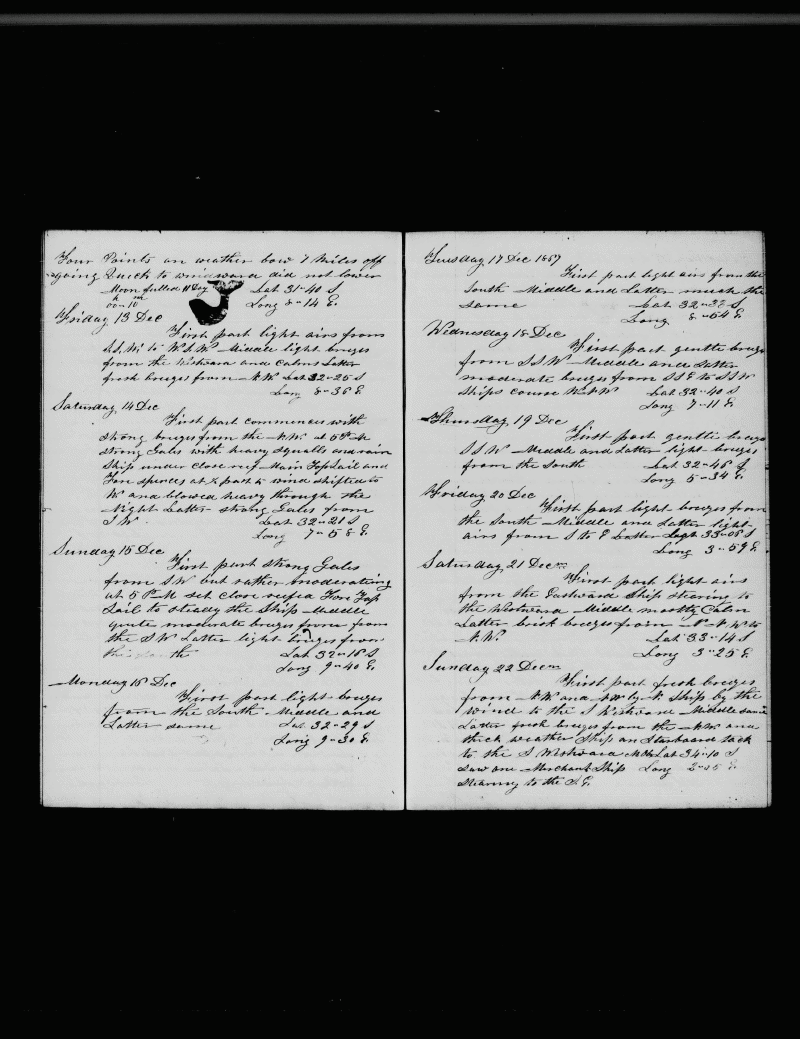 Four Points on weather bow 7 Miles off
going Quick to windward did not lower
Moon fulled 11 Day Lat 31"40 S
h m
00"10 Long 8"14 E.
Friday 13 Dec
First part light airs from
S.S.W. to W.S.W Middle light breezes
from the Westward and Calms Latter
fresh breezes from N.W. Lat 32"25 S
Long 8"36 E.
Saturday 14 Dec
First part commences with
strong breezes from the N.W. at 5 P.M
strong Gales with heavy squalls and rain
Ship under close reef Main Top Sail and
Fore spencer at ½ past 6 wind shifted to
W and blowed heavy through the
Night Latter strong Gales from
S W. Lat 32"21 S
Long 7"58 E.
Sunday 15 Dec
First part strong Gales
from S W but rather moderating
at 5 P.M set close reefed Fore Top
Sail to steady the Ship Middle
quite moderate breezes from
the S W Latter light breezes from
the South Lat 32"18 S
Long 9"40 E.
Monday 16 Dec
First part light breezes
from the South Middle and
Latter same Lat 32"29 S
Long 9"30 E.
Tuesday 17 Dec 1867
First part light airs from the
South Middle and Latter much the
same Lat 32"38 S
Long 8"54 E.
Wednesday 18 Dec
First part gentle breezes
from S S W Middle and Latter
moderate breezes from S S E to S S W
Ships course W.N.W Lat 32"40 S
Long 7"11 E.
Thursday 19 Dec
First part gentle breezes
S S W Middle and Latter light breezes
from the South Lat 32"46 S
Long 5"34 E.
Friday 20 Dec
First part light breezes from
the South Middle and Latter light
airs from S to E Latter Lat 33"08 S
Long 3"59 E.
Saturday 21 Decm
First part light airs
from the Eastward Ship stearing to
the Westward Middle mostly Calm
Latter brisk breezes from N.N.W to
N.W. Lat 33"14 S
Long 3"25 E.
Sunday 22 Decm
First part fresh breezes
from N.W and NW by N Ship by the
wind to the S Westward Middle same
Latter fresh breezes from the N.W and
thick weather Ship on Starboard tack
to the S Westward Lat 34"10 S
Saw one Merchant Ship Long 2"05 E.
Stearing to the S.E.